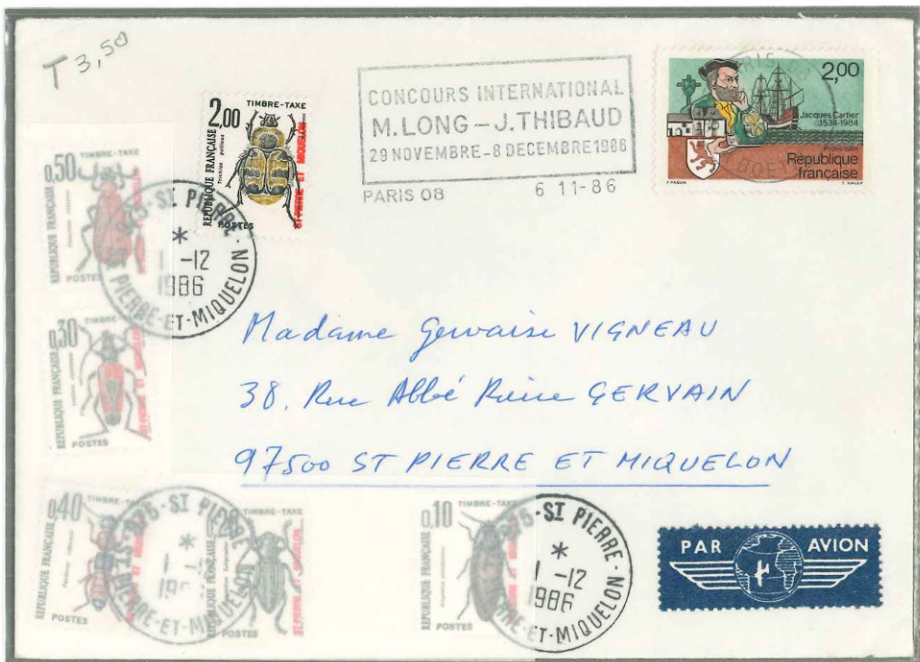 T 3,50
CONCOURS INTERNATIONAL
M. LONG – J. THIBAUD
29 NOVEMBRE - 8 DECEMBRE 1986
PARIS 08 6 11-86
2,00
Jacques Cartier
1534-1984
République
française
TIMBRE-TAXE
2,00
RÉPUBLIQUE FRANÇAISE
ST-PIERRE ET MIQUELON
POSTES
TIMBRE-TAXE
0,50
RÉPUBLIQUE FRANÇAISE
POSTES
975-ST PIERRE
*
1 -12
1986
ST PIERRE-ET-MIQUELON
TIMBRE-
0,30
RÉPUBLIQUE FRANÇAISE
ST-PIERRE ET MIQUELON
POSTES
Madame Gervaise VIGNEAU
38, Rue Abbé Pierre GERVAIN
97500 ST PIERRE ET MIQUELON
TIMBRE-TAXE
0,40
RÉPUBLIQUE FRANÇAISE
POSTES
975-ST PIERRE
*
ST PIERRE-ET-MIQUELON
TIMBRE-TAXE
RÉPUBLIQUE FRANÇAISE
POSTES
TIMBRE-TAXE
0,10
RÉPUBLIQUE FRANÇAISE
POSTES
975-ST PIERRE
*
1 -12
1986
PIERRE-ET-MIQUELON
PAR AVION